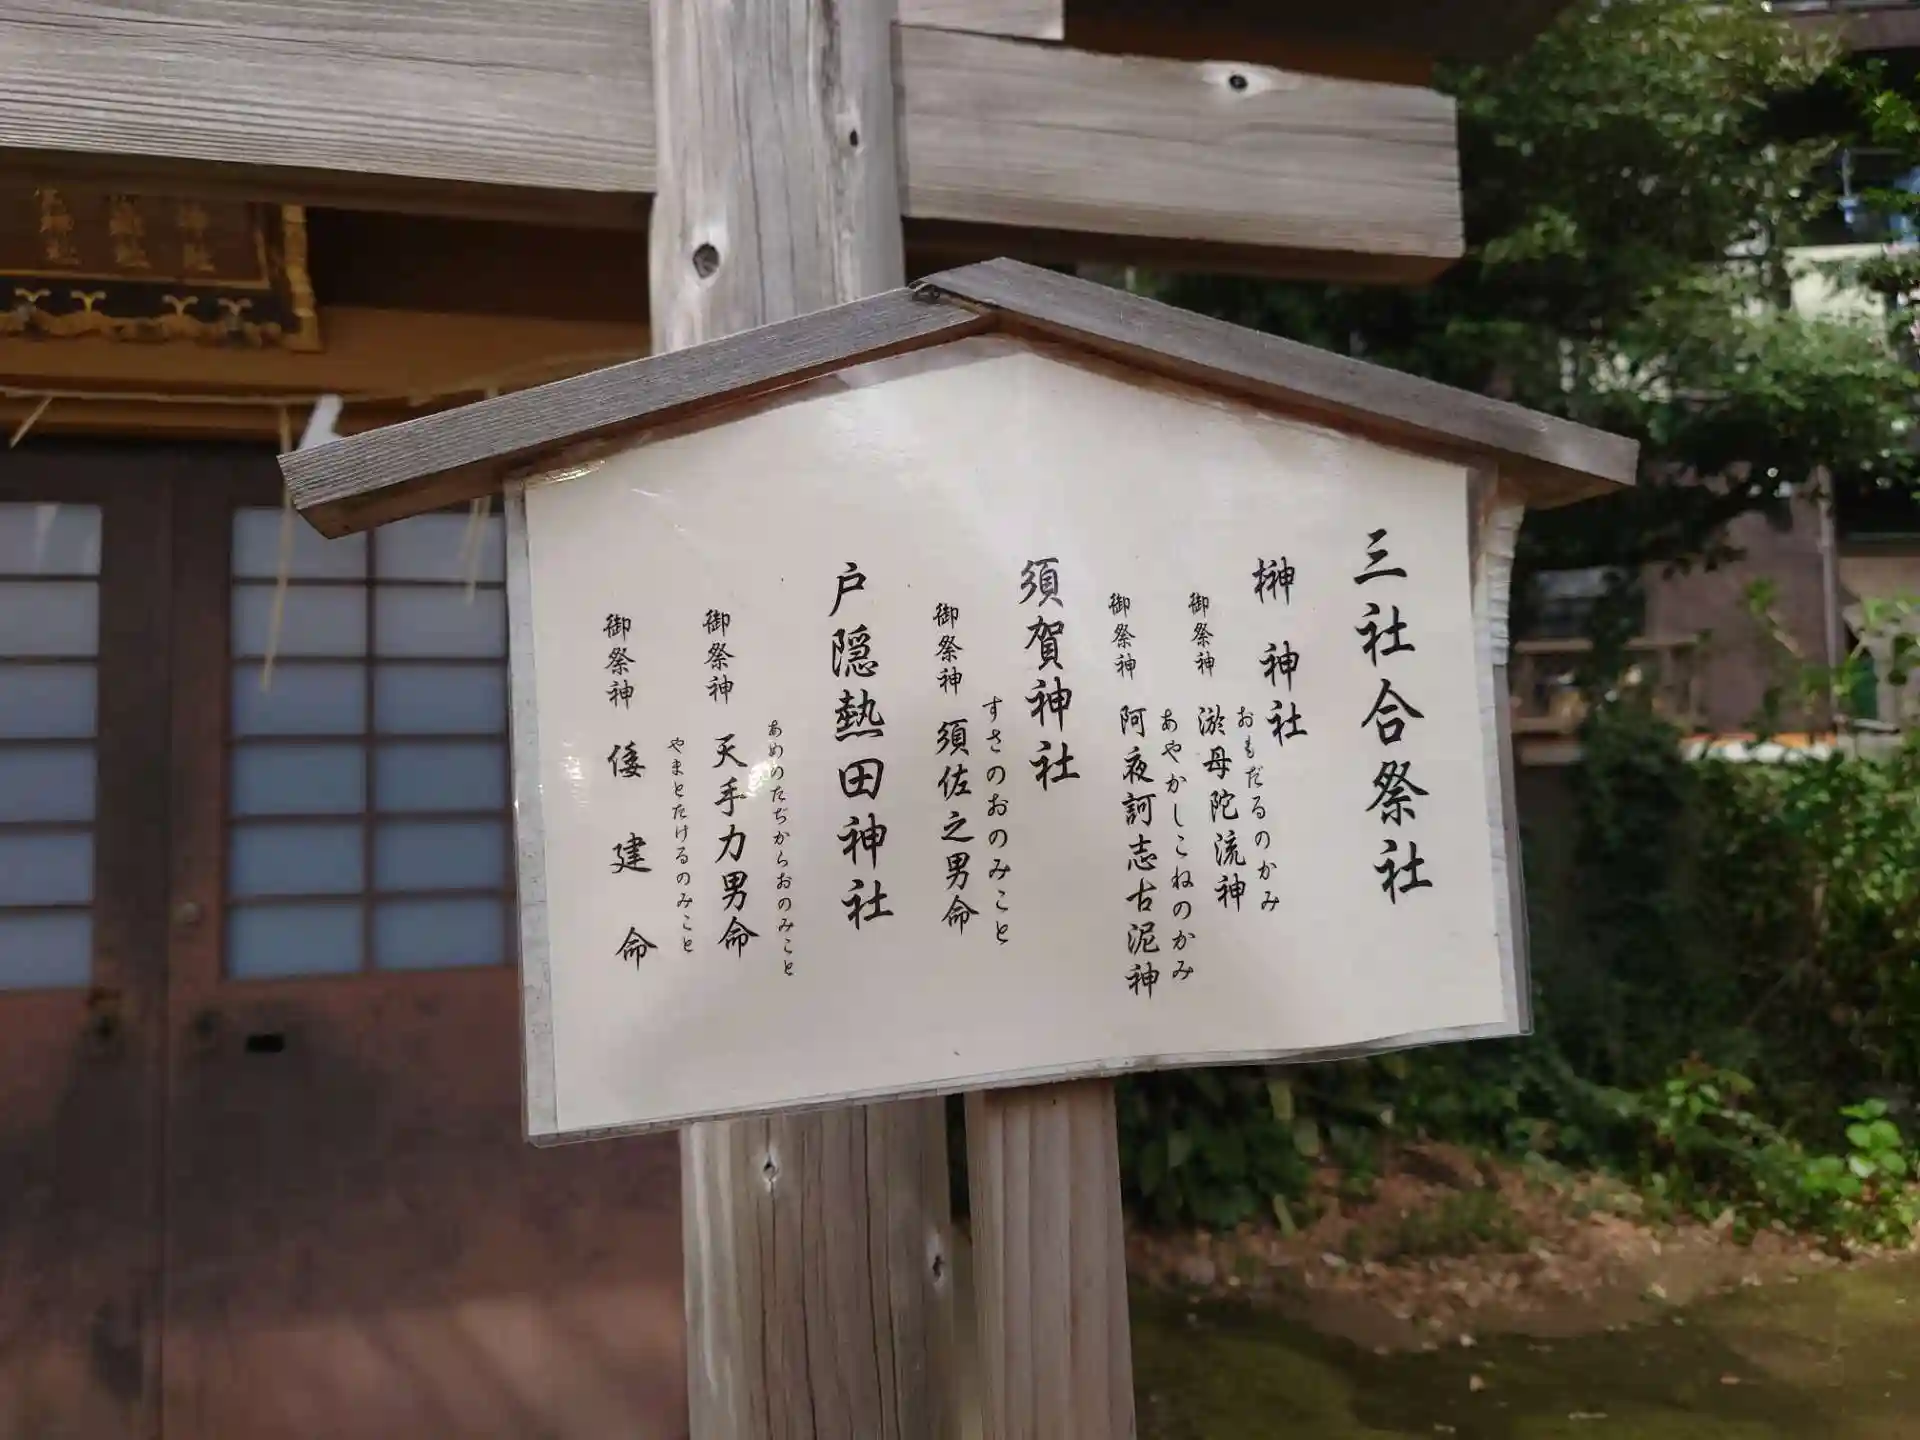 三社合祭社
榊神社
おもだるのかみ
御祭神 淤母陀流神
あやかしこねのかみ
御祭神 阿夜訶志古泥神
須賀神社
すさのおのみこと
御祭神 須佐之男命
戸隠熱田神社
あめのたぢからおのみこと
御祭神 天手力男命
やまとたけるのみこと
御祭神 倭建命